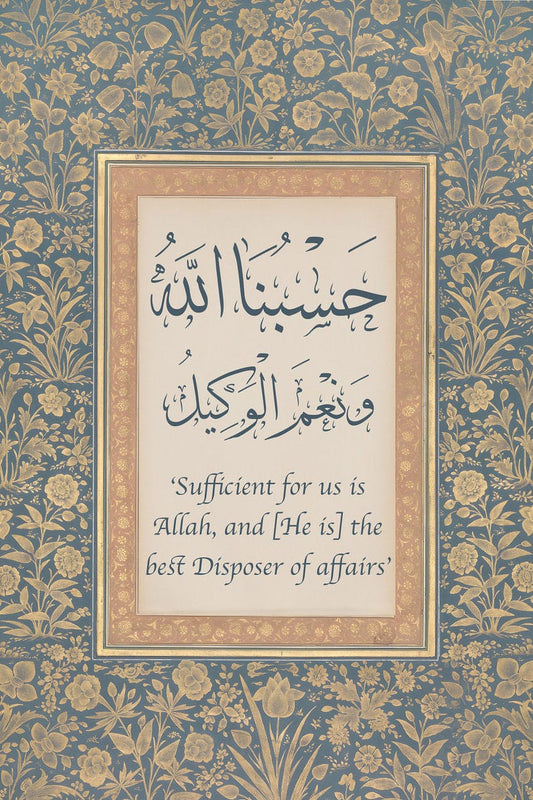 حَسْبُنَا اللَّهُ
وَنِعْمَ الْوَكِيلُ
‘Sufficient for us is
Allah, and [He is] the
best Disposer of affairs’